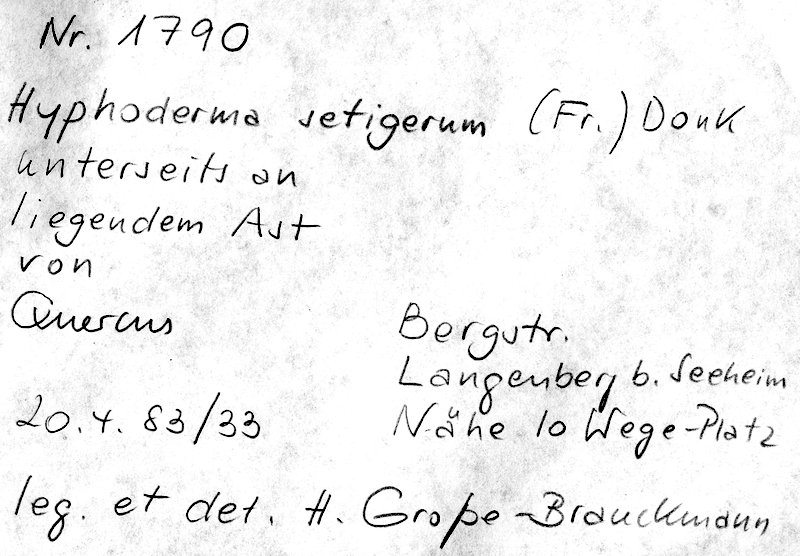 Nr. 1790
Hyphoderma setigerum (Fr.) Donk
unterseits an
liegendem Ast
von
Quercus
Bergstr.
Langenberg b. Seeheim
20.4.83/33
Nähe 10 Wege-Platz
leg. et det. H. Große-Brauckmann